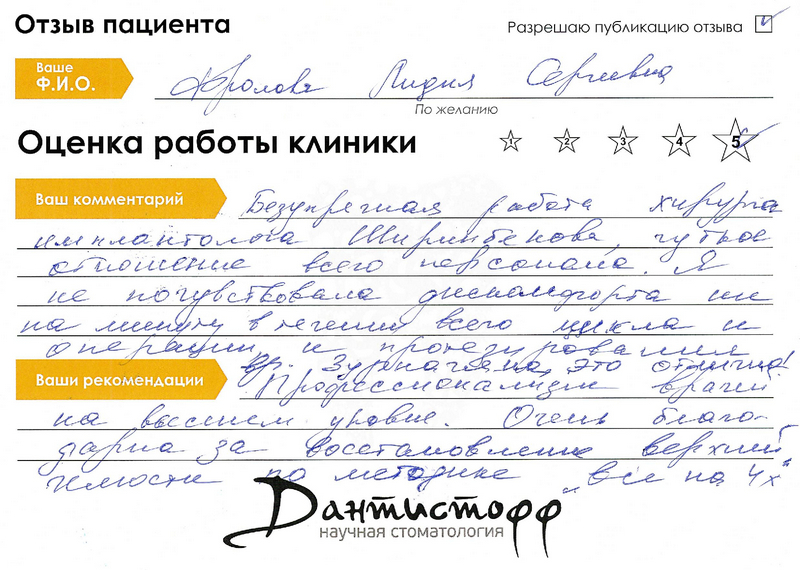 Отзыв пациента
Разрешаю публикацию отзыва
Ваше
Ф.И.О.
Фролова Лидия Сергеевна
По желанию
Оценка работы клиники
1 2 3 4 5
Ваш комментарий
Безупречная работа хирурга
имплантолога Ширинбекова, чуткое
отношение всего персонала. Я
не почувствовала дискомфорта ни
на минуту в течении всего цикла и
операции и протезирования
вр. это отлично!
Ваши рекомендации
Профессионализм врачей
на высшем уровне. Очень благо-
дарна за восстановление верхней
челюсти по методике „все на 4х"
Дантистофф
научная стоматология